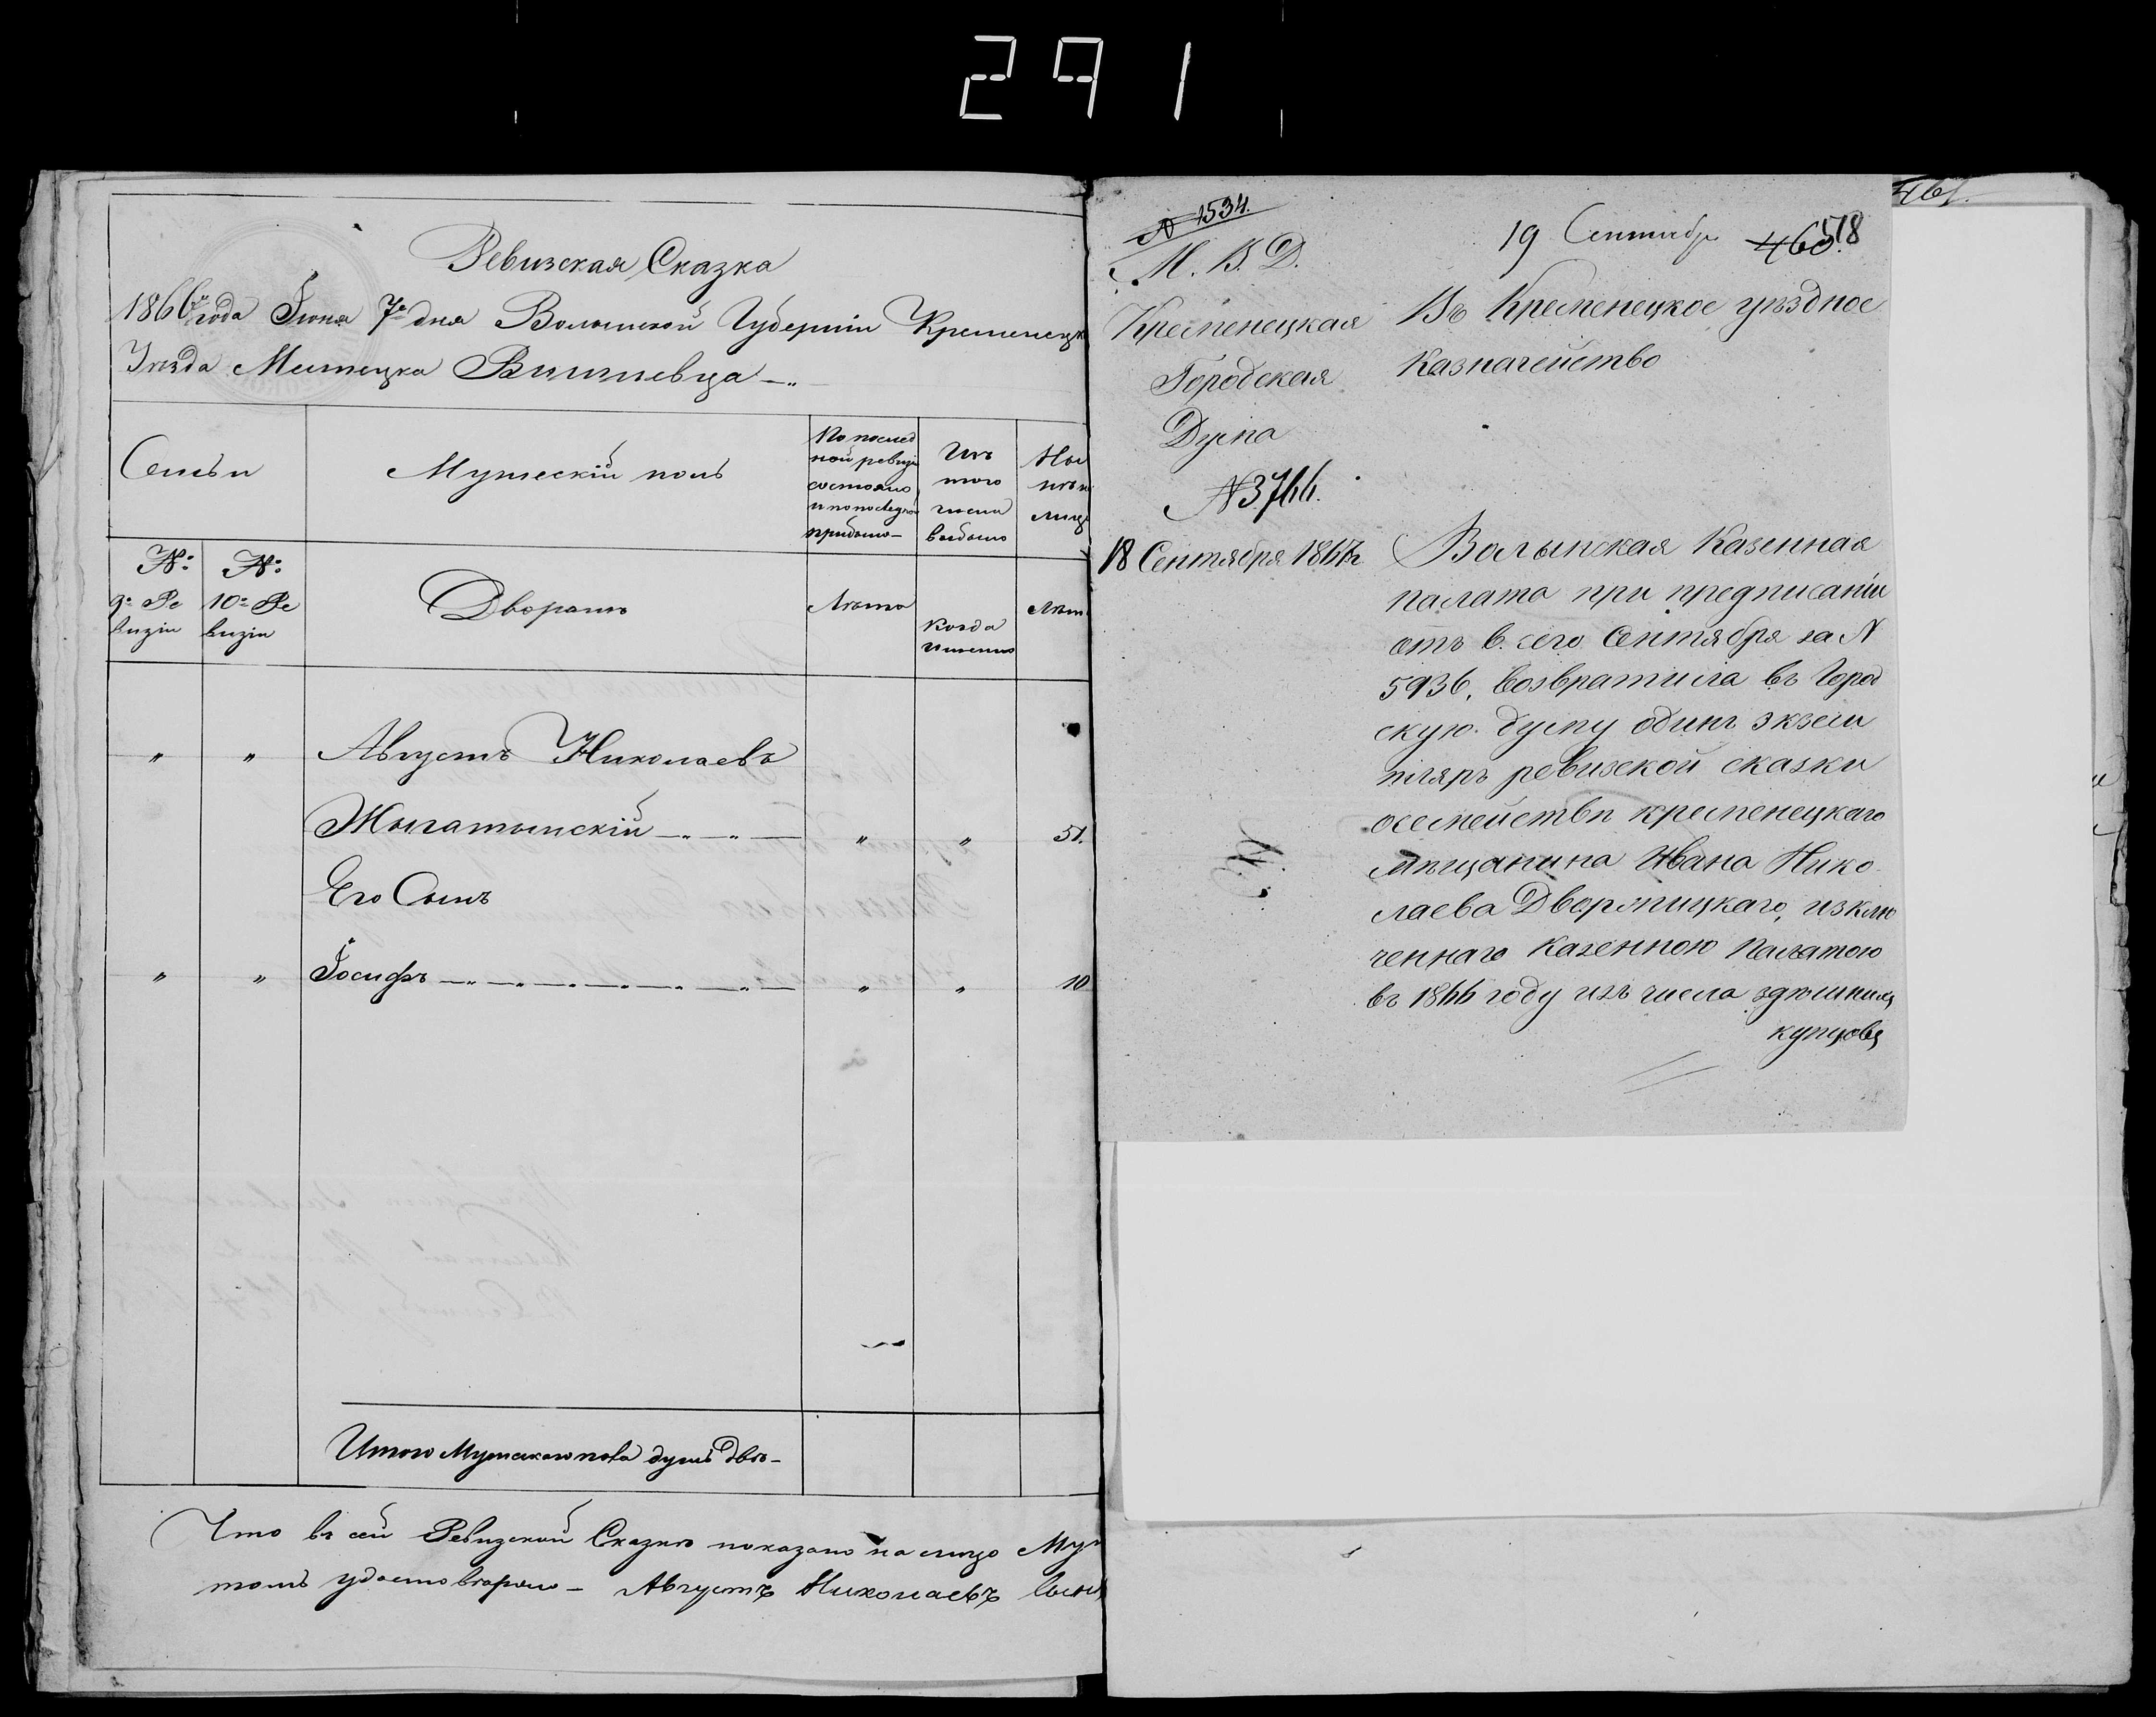 291
Ревизская Сказка
1866го года Іюня 7го дня Волынской Губерніи Кременецк
Уѣзда Местечка Вишневца
Семьи
Мужескій полъ
По послед
ной ревизіи
состояло
и по послѣдней
прибыло
Изъ
того
числа
выбыло
Ны
нѣ на
лицо
№: 9й Ре
визіи
№: 10й Ре
визіи
Дворянъ
Лѣта
Когда
именно
Лѣта
" " Августъ Николаевъ
" " 51.
Его Сынъ
" " Іосифъ " " 10
Итого Мужескаго пола душъ двѣ
Что въ сей Ревизской Сказкѣ показано на лицо Муж
томъ удостовѣряю — Августъ Николаевъ сынъ
№ 1534.
М. В. Д.
Кременецкая
Городская
Дума
№ 3766.
18 Сентября 1867 г.
19 Сентябр. 460. 518
461.
Въ Кременецкое уѣздное
Казначейство
Волынская Казенная
палата при предписаніи
отъ 6. сего Сентября за №
5936, возвратила въ Город
скую думу одинъ экзем
пляръ ревизской сказки
о семействѣ кременецкаго
мѣщанина Ивана Нико
лаева Дворницкаго, исклю
ченнаго Казенною Палатою
въ 1866 году изъ числа здѣшнихъ
купцовъ